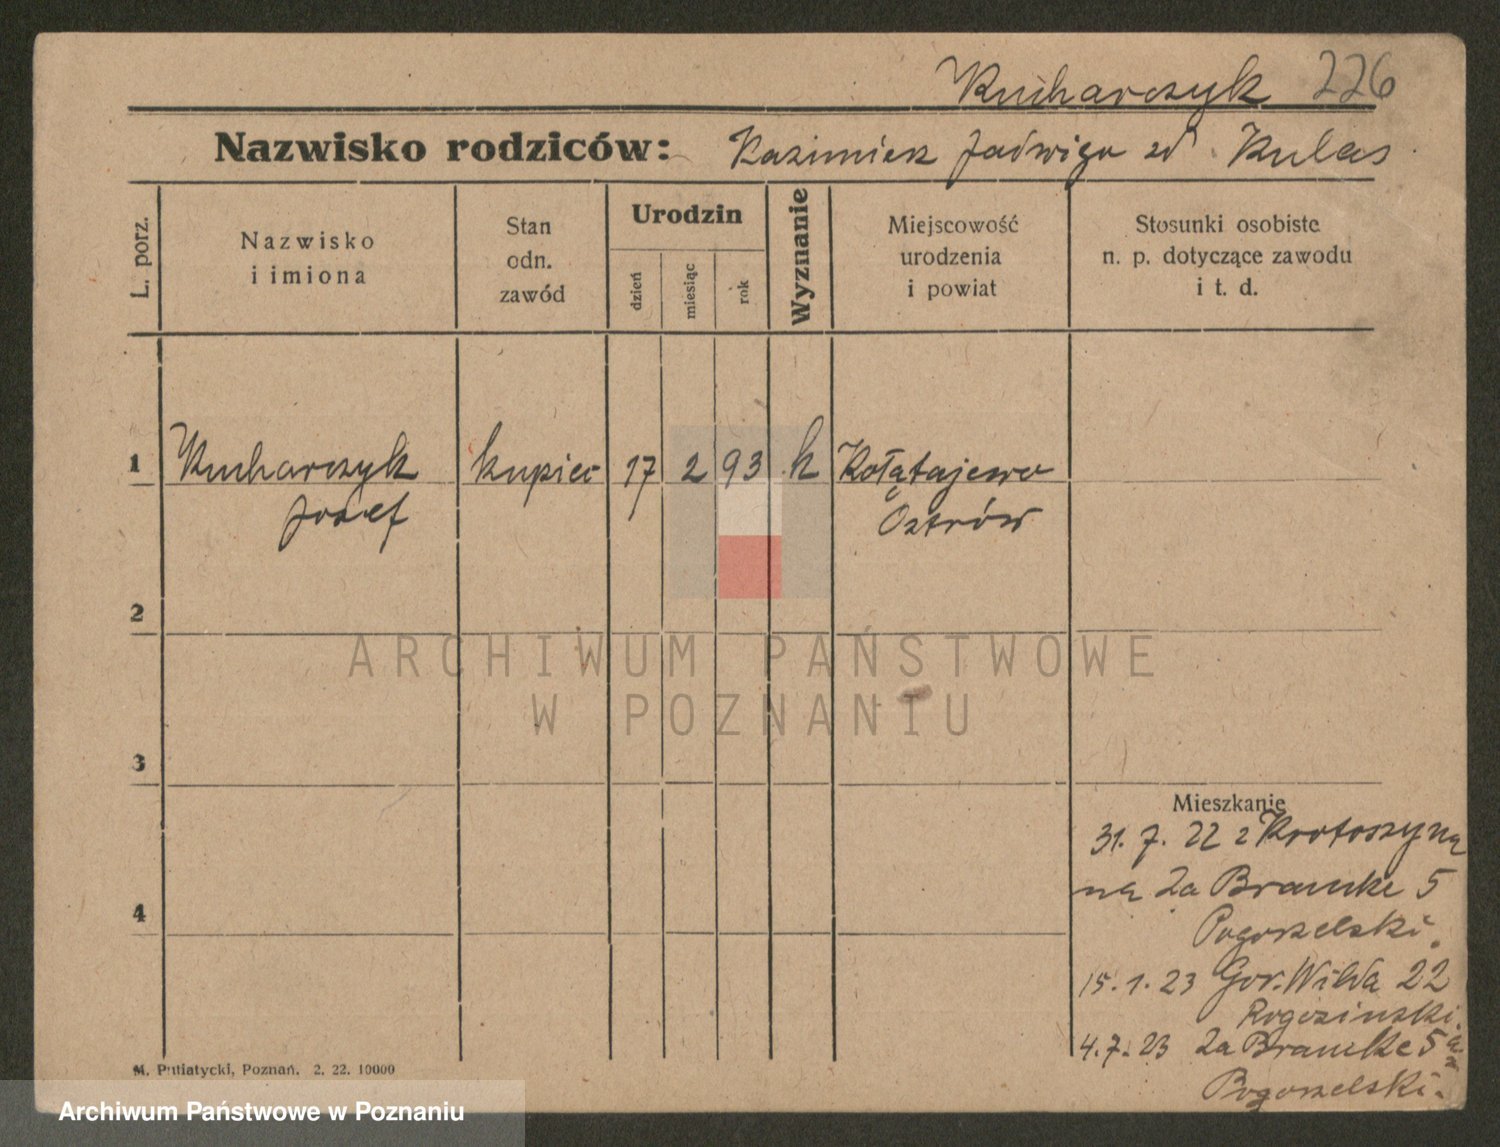 Kucharczyk 226
Nazwisko rodziców: Kazimierz Jadwiga zd Kulas
L. porz.
Nazwisko
i imiona
Stan
odn.
zawód
Urodzin
dzień
miesiąc
rok
Wyznanie
Miejscowość
urodzenia
i powiat
Stosunki osobiste
n. p. dotyczące zawodu
i t. d.
1 Kucharczyk kupiec 17 2 93 k Kołątajewo
Józef Ostrów
2
ARCHIWUM PAŃSTWOWE
W POZNANIU
3
Mieszkanie
31. 7. 22 z Krotoszyna
na Za Bramke 5
Pogorzelski.
4
15. 1. 23 Gór. Wilda 22
Rogozinski.
4. 7. 23 Za Bramke 5
Pogorzelski.
M. Putiatycki, Poznań. 2. 22. 10000
Archiwum Państwowe w Poznaniu